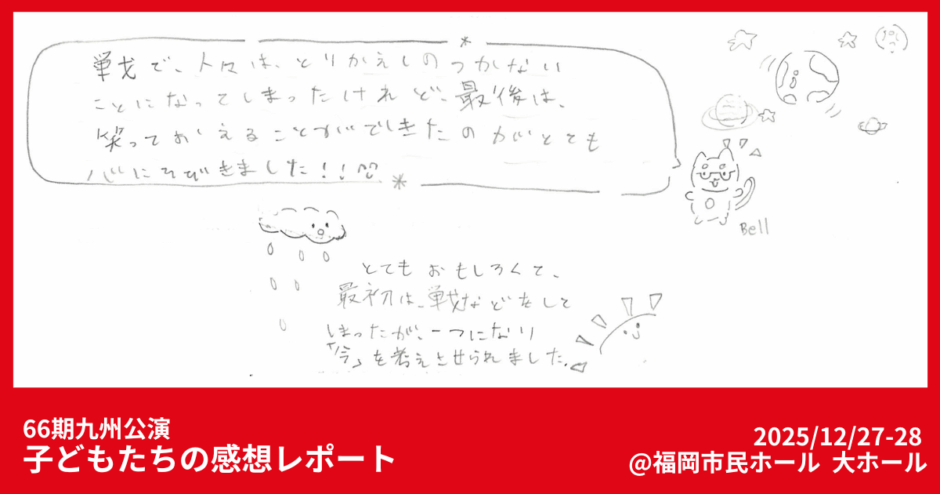 戦で、人々は、とりかえしのつかない
ことになってしまったけれど、最後は、
笑っておえることができたのがとても
心にそびきました!!
Bell
とてもおもしろくて、
最初は、戦などをして
しまったが、一つになり
「今」を考えさせられました。
66期九州公演
子どもたちの感想レポート
2025/12/27-28
@福岡市民ホール 大ホール